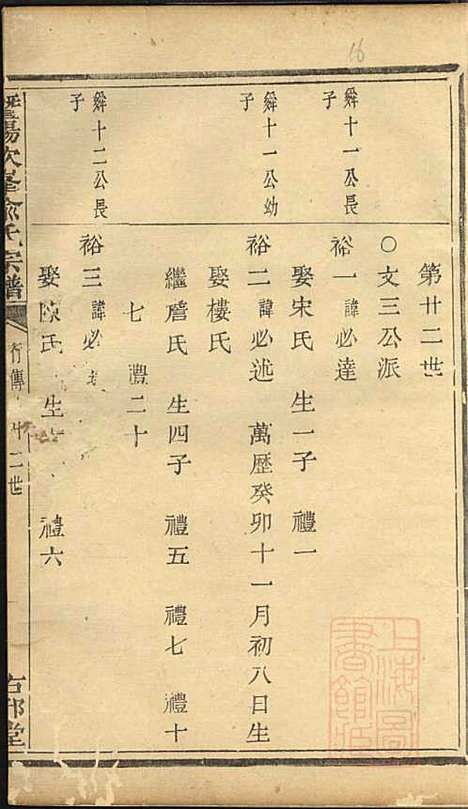 16
第廿二世
○文三公派
彝十一公長子
裕一諱必達
娶宋氏 生一子 禮一
彝十一公幼子
裕二諱必述 萬歷癸卯十一月初八日生
娶樓氏
繼詹氏 生四子 禮五 禮七 禮十
七 禮二十
彝十二公長子
裕三諱必
娶陳氏 生 禮六
暨陽次峯俞氏宗譜 行傳 廿二世 右邨堂
上海圖書館藏